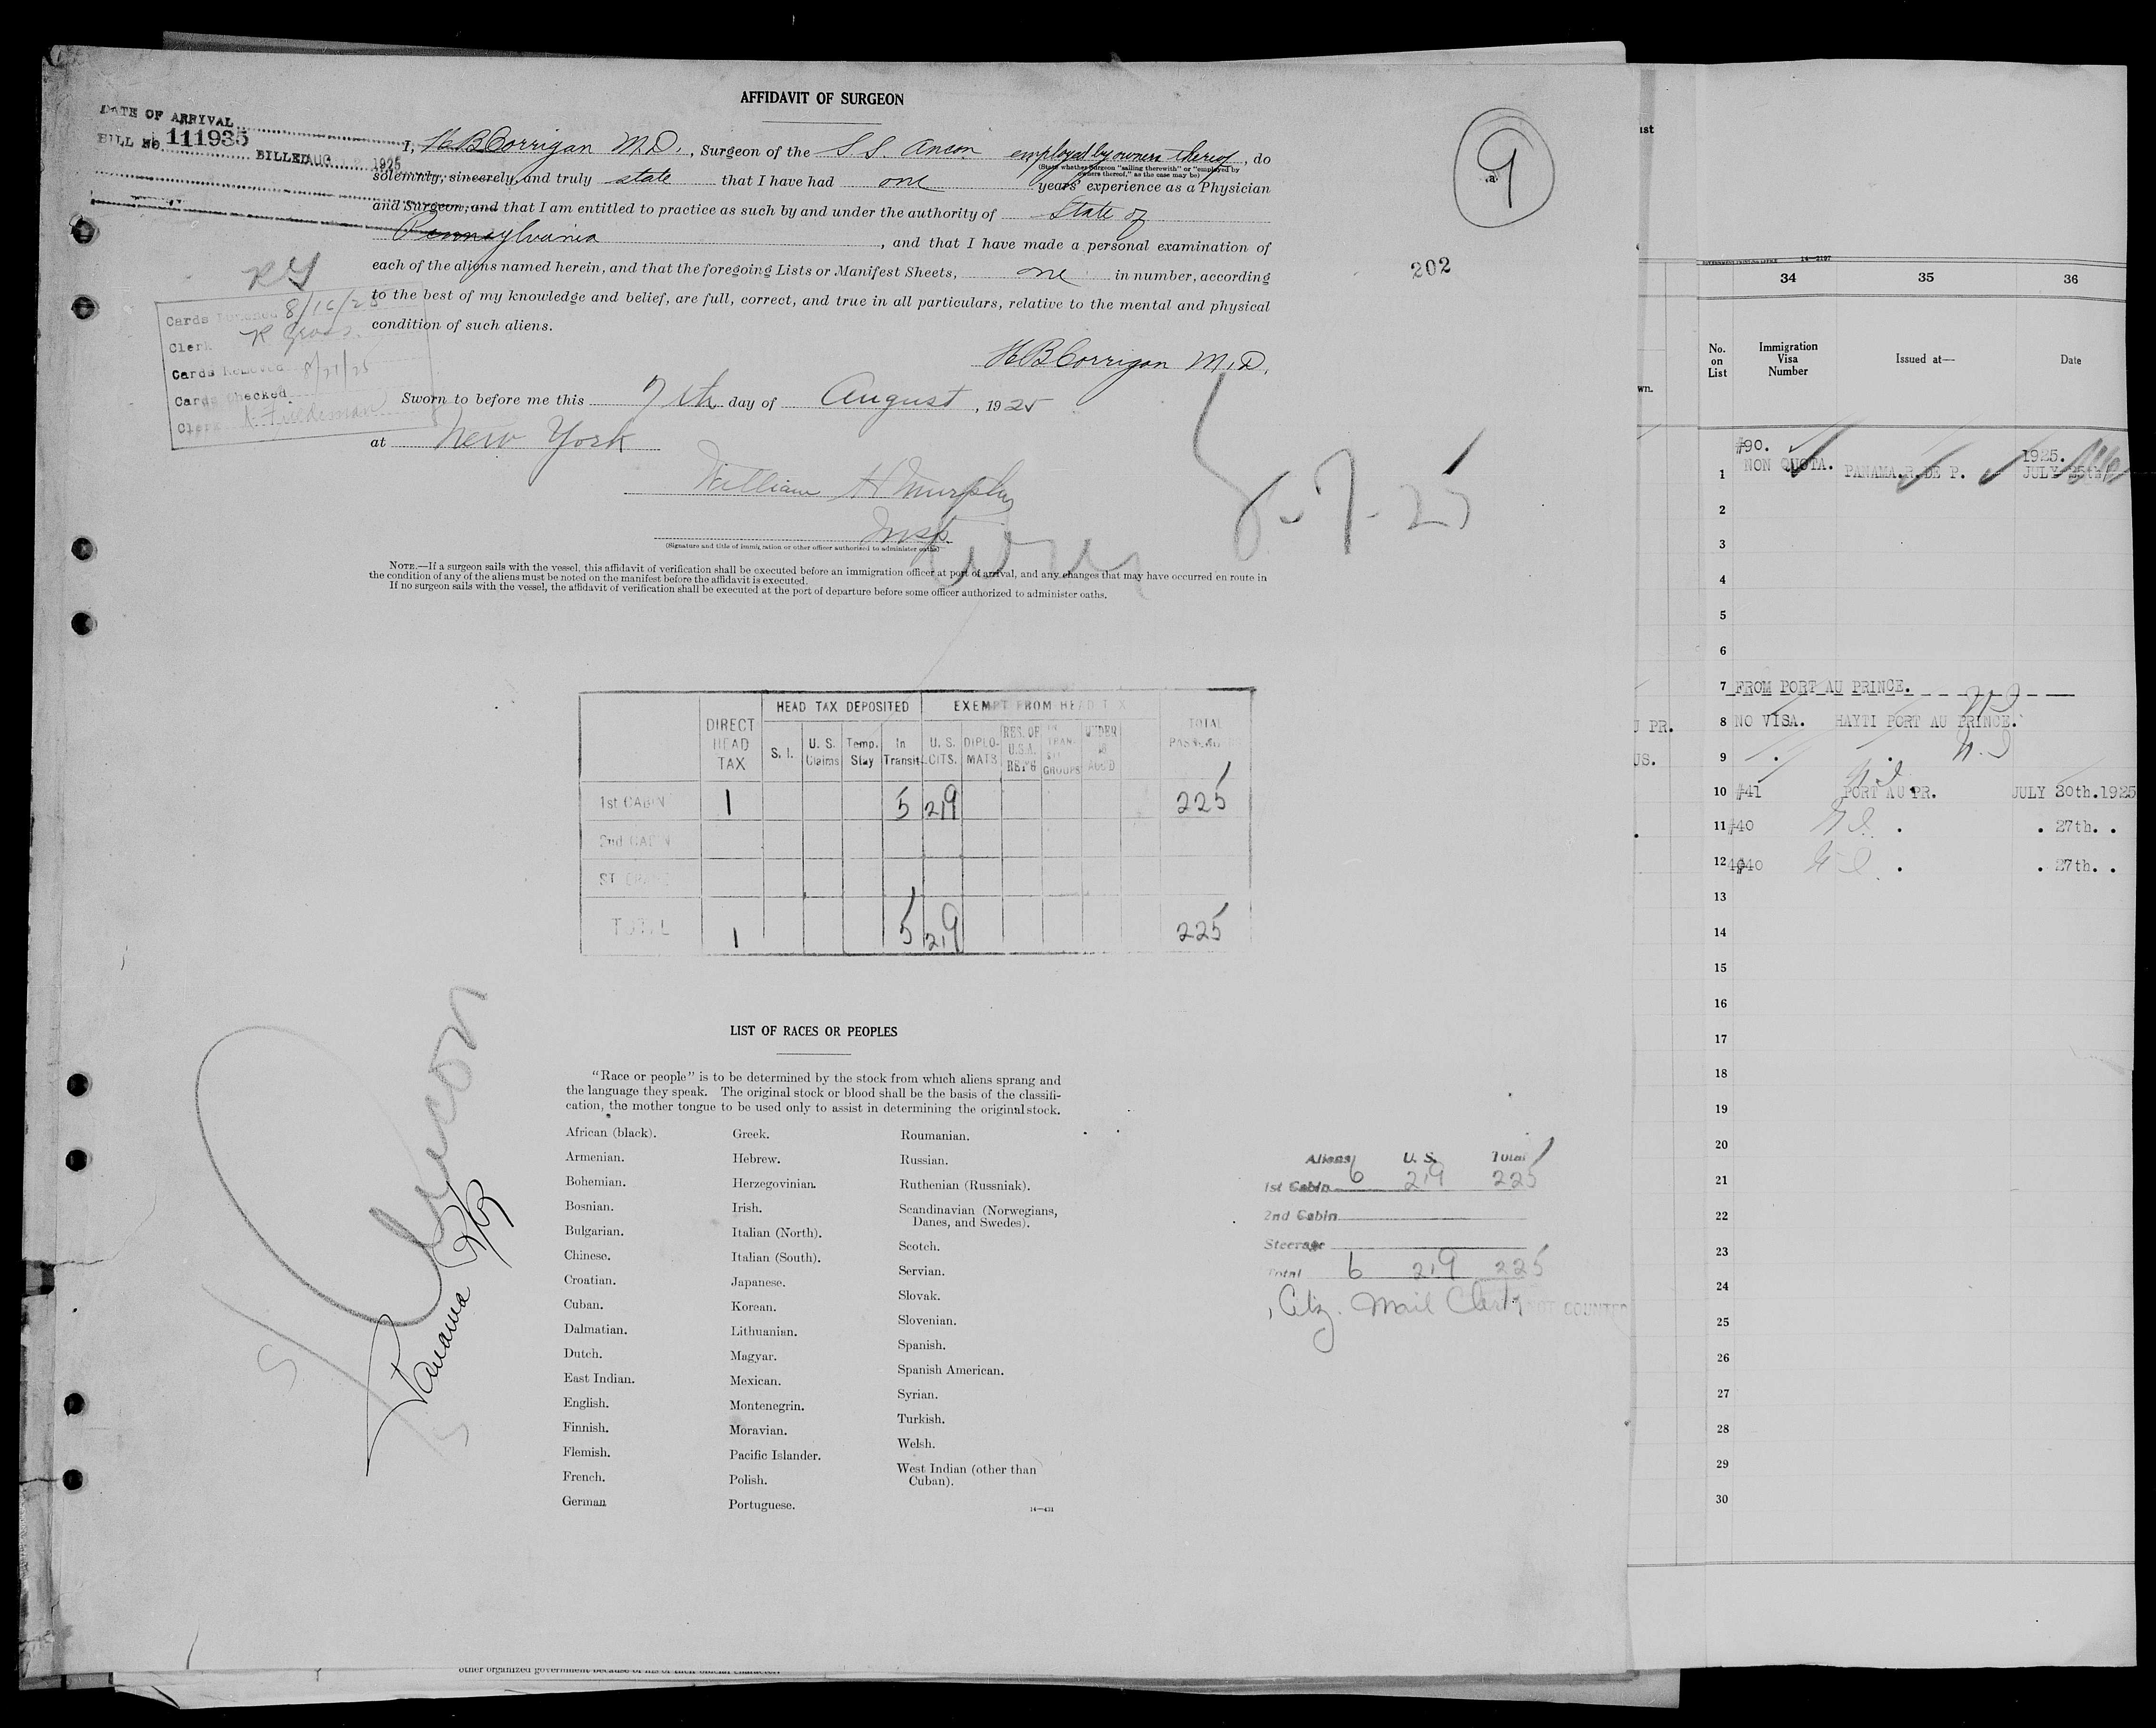 AFFIDAVIT OF SURGEON
DATE OF ARRIVAL
BILL No. 111935 BILLED AUG 1925
I, H B Corrigan M.D., Surgeon of the S.S. Ancon employed by owners thereof, do
(State whether Surgeon "sailing therewith" or "employed by owners thereof," as the case may be)
solemnly, sincerely, and truly state that I have had one years' experience as a Physician
and Surgeon, and that I am entitled to practice as such by and under the authority of State of
Pennsylvania, and that I have made a personal examination of
each of the aliens named herein, and that the foregoing Lists or Manifest Sheets, one in number, according
to the best of my knowledge and belief, are full, correct, and true in all particulars, relative to the mental and physical
condition of such aliens.
H B Corrigan M.D.
Sworn to before me this 7th day of August, 1925
at New York
William H Murphy
Insp.
(Signature and title of immigration or other officer authorized to administer oaths)
9
202
8-7-25
Cards 8/16/25
Clerk R Gross
Cards Removed 8/21/25
Cards Checked
Clerk
NOTE.—If a surgeon sails with the vessel, this affidavit of verification shall be executed before an immigration officer at port of arrival, and any changes that may have occurred en route in
the condition of any of the aliens must be noted on the manifest before the affidavit is executed.
If no surgeon sails with the vessel, the affidavit of verification shall be executed at the port of departure before some officer authorized to administer oaths.
DIRECT HEAD TAX
HEAD TAX DEPOSITED
EXEMPT FROM HEAD TAX
TOTAL
S. I.
U. S. Claims
Temp. Stay
In Transit
U. S. CITS.
DIPLOMATS
RES. OF U.S.A. RET'G
GROUPS
UNDER 16 ACC'D
1st CABIN 1 5 219 225
2nd CABIN
TOTAL 1 5 219 225
Ancon
Panama
LIST OF RACES OR PEOPLES
"Race or people" is to be determined by the stock from which aliens sprang and
the language they speak. The original stock or blood shall be the basis of the classifi-
cation, the mother tongue to be used only to assist in determining the original stock.
African (black).
Armenian.
Bohemian.
Bosnian.
Bulgarian.
Chinese.
Croatian.
Cuban.
Dalmatian.
Dutch.
East Indian.
English.
Finnish.
Flemish.
French.
German
Greek.
Hebrew.
Herzegovinian.
Irish.
Italian (North).
Italian (South).
Japanese.
Korean.
Lithuanian.
Magyar.
Mexican.
Montenegrin.
Moravian.
Pacific Islander.
Polish.
Portuguese.
Roumanian.
Russian.
Ruthenian (Russniak).
Scandinavian (Norwegians,
Danes, and Swedes).
Scotch.
Servian.
Slovak.
Slovenian.
Spanish.
Spanish American.
Syrian.
Turkish.
Welsh.
West Indian (other than
Cuban).
14—431
Aliens U. S. Total
1st Cabin 6 219 225
2nd Cabin
Steerage
Total 6 219 225
1 Citz. Mail Clerk NOT COUNTED
other organized government because of his or their official character.
14—2197
34 35 36
No. on List
Immigration Visa Number
Issued at—
Date
1 #90. NON QUOTA. PANAMA.R.DE P. 1925. JULY 25th
2
3
4
5
6
7 FROM PORT AU PRINCE.
8 NO VISA. HAYTI PORT AU PRINCE.
9
10 #41 PORT AU PR. JULY 30th.1925
11 #40 . . 27th. .
12 #40 . . 27th. .
13
14
15
16
17
18
19
20
21
22
23
24
25
26
27
28
29
30